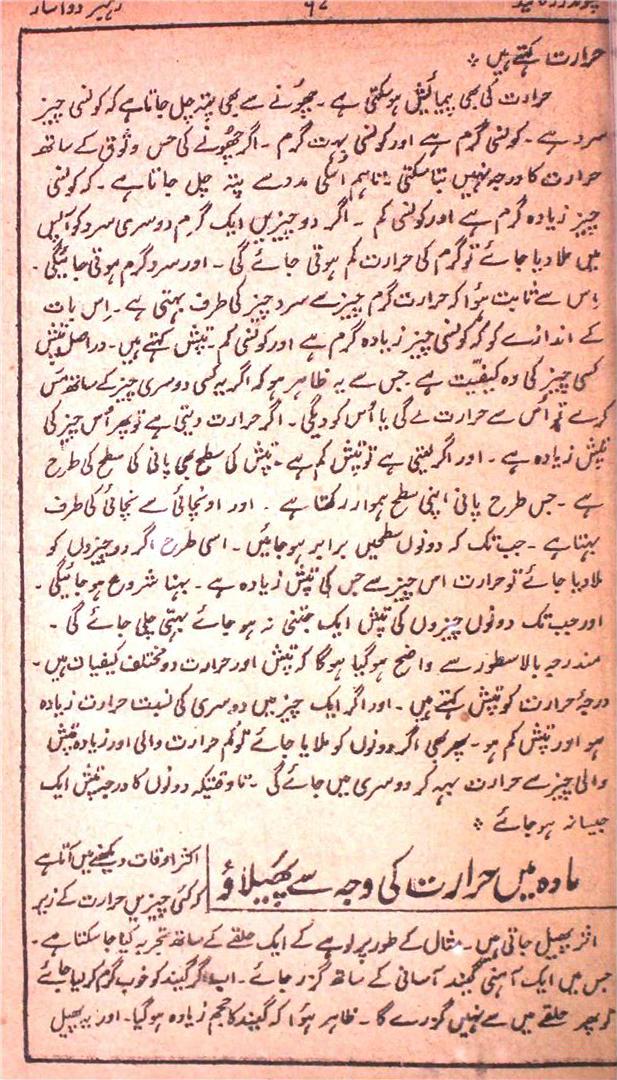 رہبر دواساز
حرارت کہتے ہیں ٭
حرارت کی بھی پیمائیش ہوسکتی ہے۔ چھونے سے بھی پتہ چل جاتا ہے کہ کونسی چیز
سرد ہے۔ کونسی گرم ہے اور کونسی بہت گرم ۔ اگر چھونے کی حس وثوق کے ساتھ
حرارت کا درجہ نہیں بتا سکتی ۔ تاہم اُسکی مدد سے پتہ چل جاتا ہے ۔ کہ کونسی
چیز زیادہ گرم ہے اور کونسی کم ۔ اگر دو چیزیں ایک گرم دوسری سرد کو آپس
میں ملا دیا جائے تو گرم کی حرارت کم ہوتی جائے گی ۔ اور سرد گرم ہوتی جائیگی ۔
اِس سے ثابت ہؤا کہ حرارت گرم چیز سے سرد چیز کی طرف بہتی ہے ۔ اِس بات
کے اندازے کو کہ کونسی چیز زیادہ گرم ہے اور کونسی کم ۔ تپش کہتے ہیں۔ دراصل تپش
کسی چیز کی وہ کیفیّت ہے ۔ جس سے یہ ظاہر ہو کہ اگر یہ کسی دوسری چیز کے ساتھ مَس
کرے تو اُس سے حرارت لے گی یا اُس کو دیگی ۔ اگر حرارت دیتی ہے تو پھر اُس چیز کی
تپش زیادہ ہے ۔ اور اگر لیتی ہے تو تپش کم ہے ۔ تپش کی سطح بھی پانی کی سطح کی طرح
ہے ۔ جس طرح پانی اپنی سطح ہموار رکھتا ہے ۔ اور اونچائی سے نچائی کی طرف
بہتا ہے ۔ جب تک کہ دونوں سطحیں برابر ہو جائیں ۔ اسی طرح اگر دو چیزوں کو
ملا دیا جائے تو حرارت اس چیز سے جس کی تپش زیادہ ہے ۔ بہنا شروع ہو جائیگی ۔
اور جب تک دونوں چیزوں کی تپش ایک جتنی نہ ہو جائے بہتی چلی جائے گی ۔
مندرجہ بالا سطور سے واضح ہوگیا ہوگا کہ تپش اور حرارت دو مختلف کیفیات ہیں ۔
درجۂ حرارت کو تپش کہتے ہیں ۔ اور اگر ایک چیز میں دوسری کی نسبت حرارت زیادہ
ہو اور تپش کم ہو ۔ پھر بھی اگر دونوں کو ملایا جائے تو کم حرارت والی اور زیادہ تپش
والی چیز سے حرارت بہہ کر دوسری میں جائے گی ۔ تا وقتیکہ دونوں کا درجہ تپش ایک
جیسا نہ ہو جائے ٭
مادہ میں حرارت کی وجہ سے پھیلاؤ
اکثر اوقات دیکھنے میں آتا ہے
کہ کئی چیزیں حرارت کے زیر
اثر پھیل جاتی ہیں ۔ مثال کے طور پر لوہے کے ایک حلقے کے ساتھ تجربہ کیا جا سکتا ہے ۔
جس میں ایک آہنی گیند آسانی کے ساتھ گزر جائے ۔ اب اگر گیند کو خوب گرم کر لیا جائے
تو پھر حلقے میں سے نہیں گزرے گا ۔ ظاہر ہؤا کہ گیند کا حجم زیادہ ہوگیا ۔ اور یہ پھیل